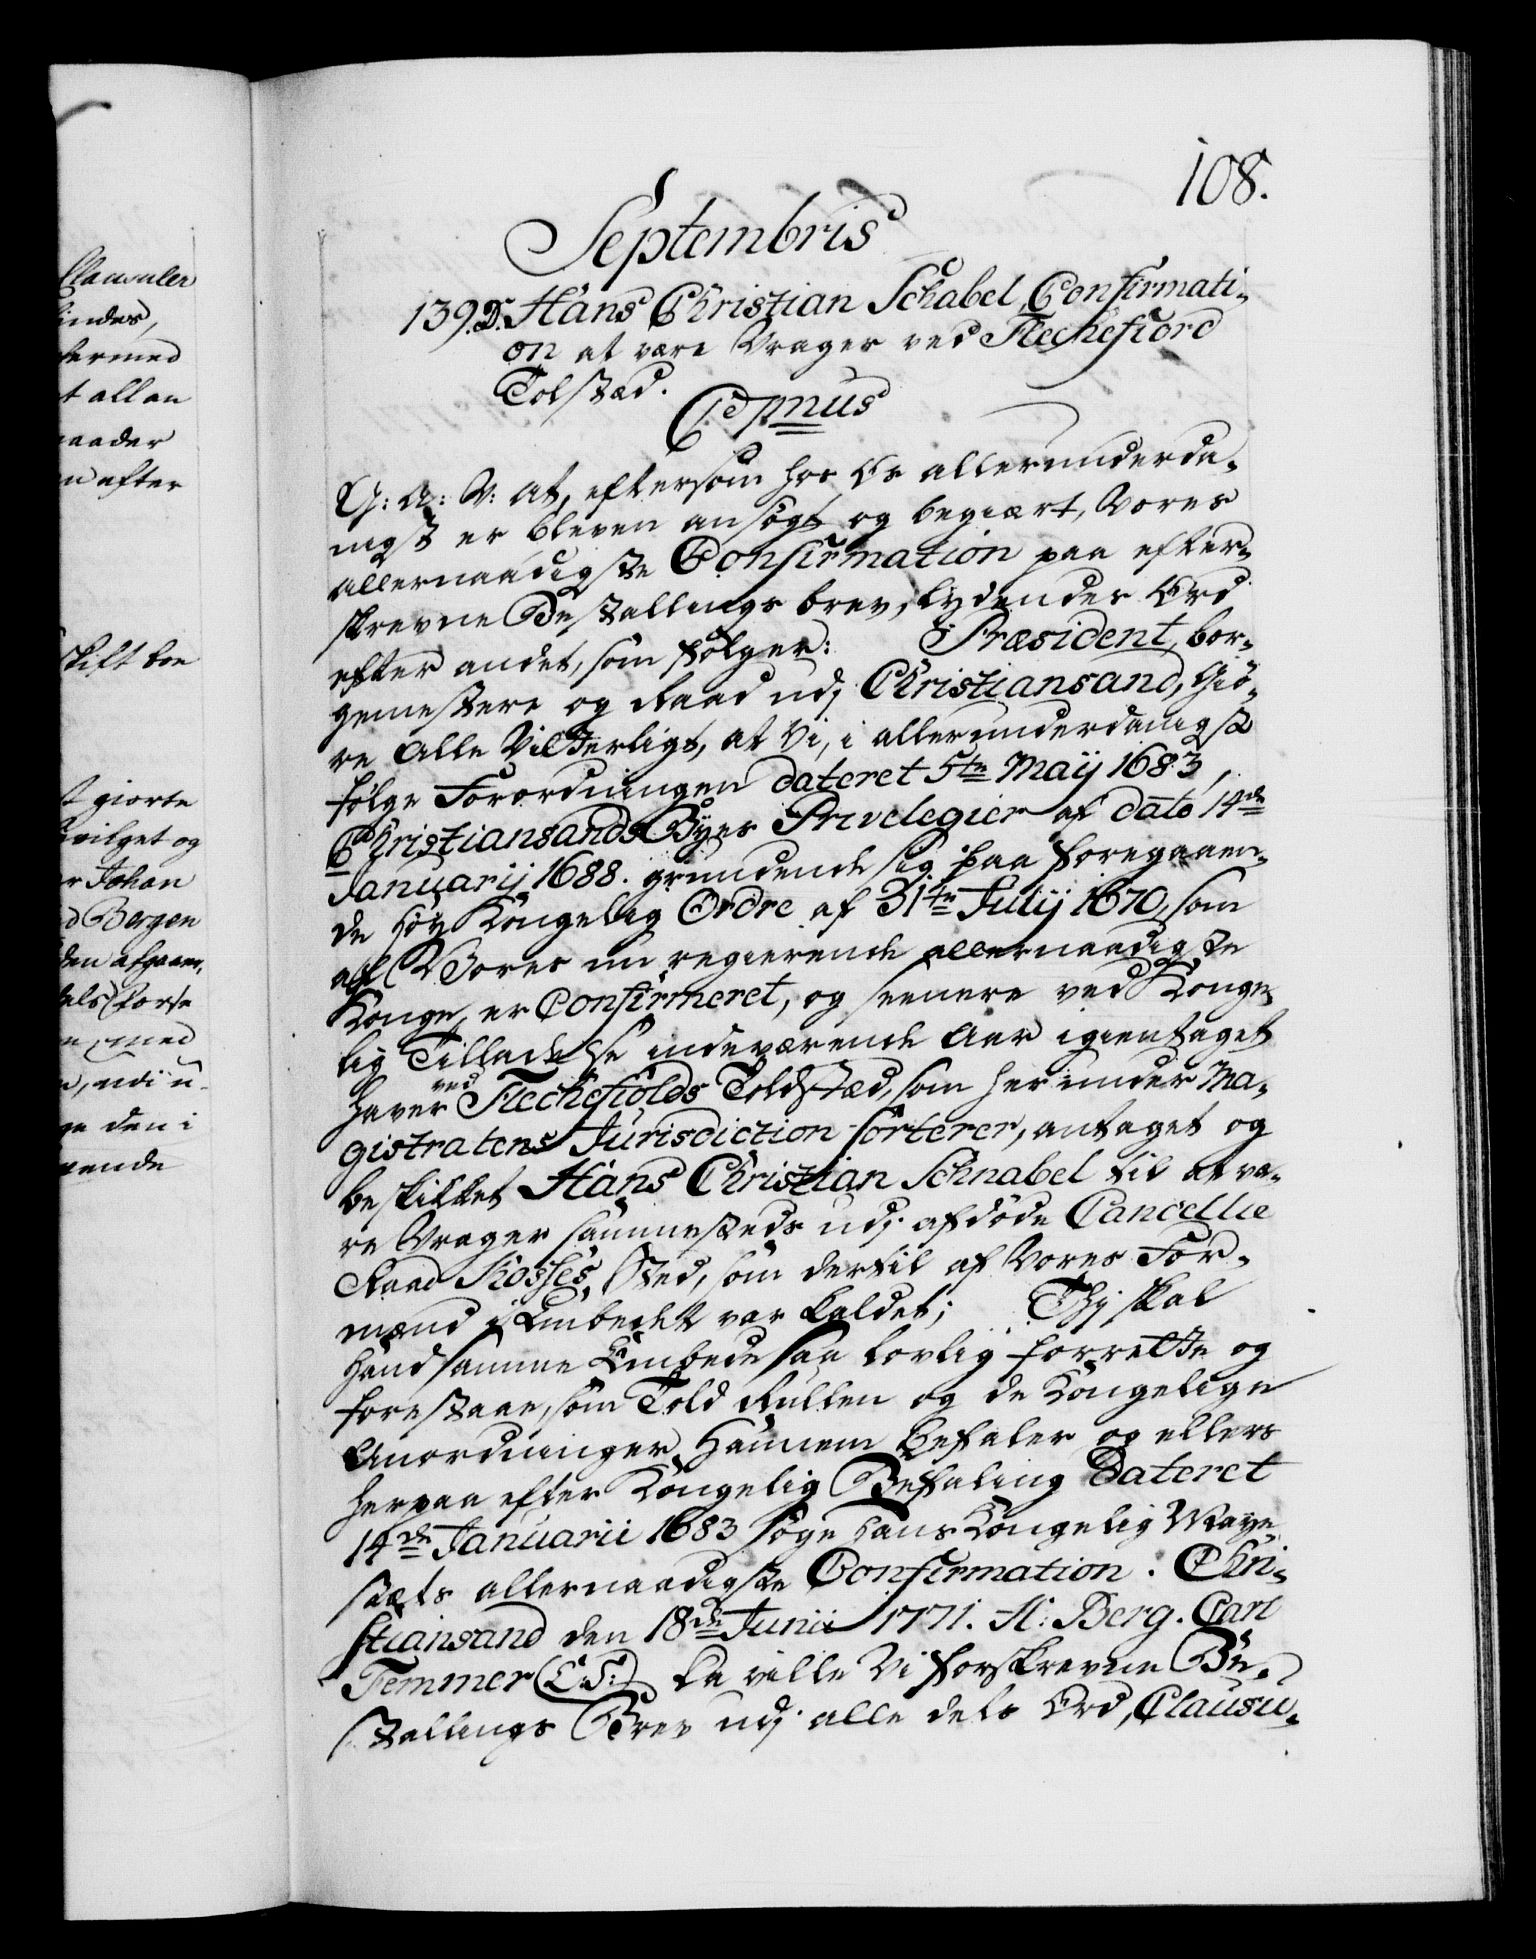 108.
Septembris
139. D. Hans Christian Schabel Confirmati-
on at være Vrager ved Fleckefiord
Tolsted.
Cptmus
G: A: V: at, eftersom hos Os allerunderda-
nigst er bleven ansøgt og begiært, Vores
allernaadigste Confirmation paa efter-
skrevne Bestallings brev, lydendes Ord
efter andet, som følger: Præsident, bor-
gemestere og Raad udj Christiansand, Giö-
re Alle Vitterligt, at Vi, i allerunderdanigst
følge Forordningen dateret 5te Maij 1683,
Christiansands Byes Privelegier af dato 14de
Januarij 1688. grundende sig paa foregaaen-
de høy Kongelig Ordre af 31te Julij 1670, som
af Vores nu regierende allernaadigste
Konge, er Confirmeret, og seenere ved Konge-
lig Tilladelse indeværende Aar igientaget
haver ved Fleckefiolds Toldsted, som her under Ma-
gistratens Jurisdiction sorterer, antaget og
beskikket Hans Christian Schnabel til at væ-
re Vrager sammesteds udj afdöde Cancellie
Raad Kosses Sted, som dertil af Vores For-
mænd i Embedet var kaldet; Thj skal
hand samme Embede saa lovlig forrette og
forestaae, som Told Rullen og de Kongelige
Anordninger Hannem befaler og ellers
herpaa efter Kongelig Befaling Dateret
14de Januarii 1683 søge Hans Kongelig Maye-
stæts allernaadigste Confirmation. Chri-
stiansand den 18de Junii 1771. A: Berg. Carl
Femmer (L.S:) Da ville Vi forskrevne Be-
stallings Brev udj alle dets Ord, Clausu-
Clausuler
findes,
hermed
t allan
maader
n efter
skift bre
t giorte
hvilget og
r Johan
d Bergen
den afgaan,
dels forse
n, med
n, udi u-
ge den i
vende